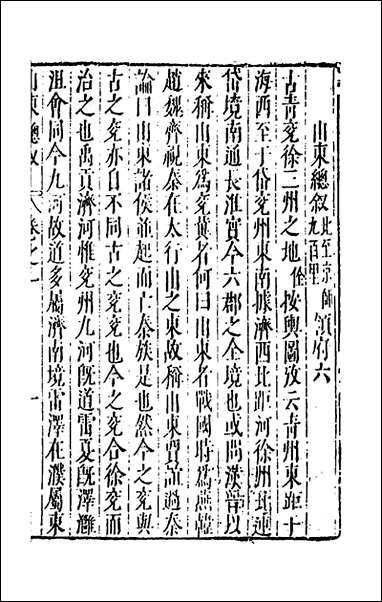 山東總叙北至京師九百里餘領府六
古青兖徐二州之地按輿圖攷云青州東距于
海西至于岱兖州東南據濟西北距河徐州北連
岱境南通長淮實今六郡之全境也或問漢晉以
來稱山東為兖冀者何曰山東名戰國時爲燕韓
趙魏齊視秦在太行山之東故稱山東賈誼過秦
論曰山東諸侯並起而亡秦族是也然今之兖與
古之兖亦自不同古之兖兖也今之兖合徐兖而
治之也禹貢濟河惟兖州九河既道雷夏既澤灉
沮會同今九河故道多屬濟南境雷澤在濮屬東
山東總叙 卷之二 一